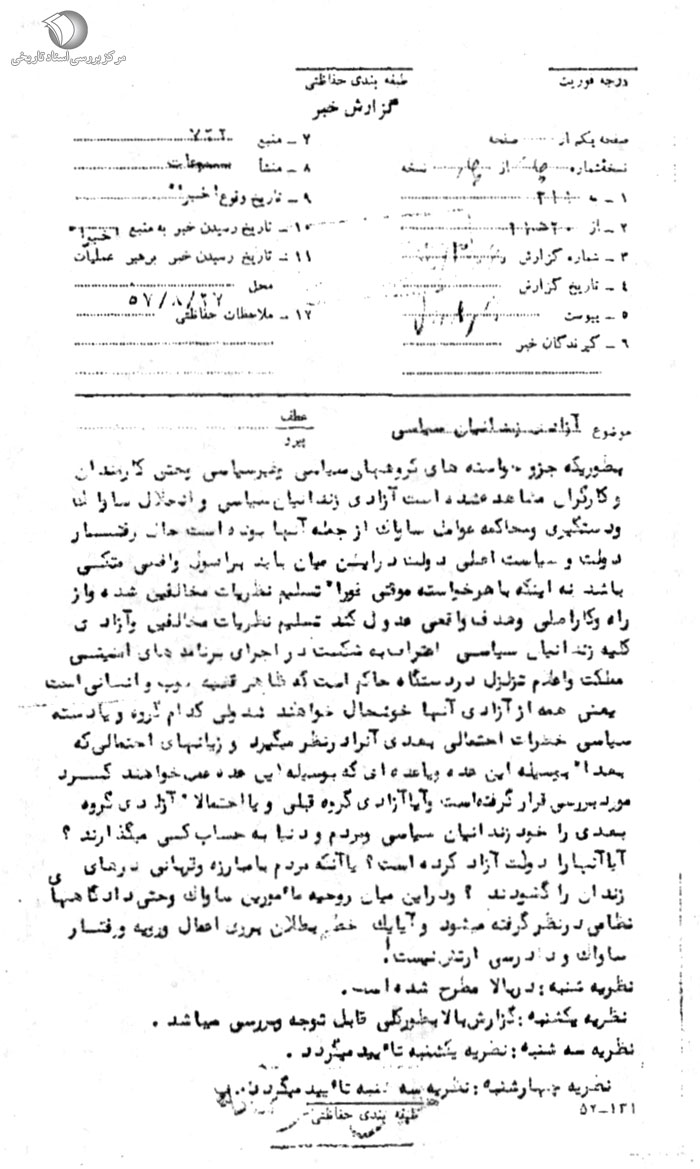 مرکز بررسی اسناد تاریخی
درجه فوریت
طبقه بندی حفاظتی
گزارش خبر
صفحه یکم از صفحه
۷ ـ منبع
نسخه شماره چهار از چهار نسخه
۸ ـ منشأ مسموعات
۱ ـ به ۳۱۱
۹ ـ تاریخ وقوع خبر
۲ ـ از
۱۰ ـ تاریخ رسیدن خبر به منبع اخیرا"
۳ ـ شماره گزارش
۱۱ ـ تاریخ رسیدن خبر برهبر عملیات
۴ ـ تاریخ گزارش
محل ۵۷/۸/۲۷
۵ ـ پیوست
۱۲ ـ ملاحظات حفاظتی
۶ ـ گیرندگان خبر
موضوع آزادی زندانیان سیاسی
عطف
پیرو
بطوریکه جزو خواسته های گروههای سیاسی وغیرسیاسی وحتی کارمندان
و کارگران مشاهده شده است آزادی زندانیان سیاسی و انحلال ساواک
ودستگیری ومحاکمه عوامل ساواک از جمله آنها بوده است حال رفتار
دولت و سیاست اصلی دولت دراین میان باید براصول واقعی متکی
باشد نه اینکه باهرخواسته موقتی فورا" تسلیم نظریات مخالفین شده واز
راه وکار اصلی وهدف واقعی عدول کند تسلیم نظریات مخالفین وآزادی
کلیه زندانیان سیاسی اعتراف به شکست در اجرای برنامه های امنیتی
مملکت واعلام تزلزل در دستگاه حاکم است که ظاهر قضیه خوب و انسانی است
یعنی همه از آزادی آنها خوشحال خواهند شد ولی کدام گروه و یا دسته
سیاسی خطرات احتمالی بعدی آنرا درنظر میگیرد و زیانهای احتمالی که
بعدا" بوسیله این عده ویا عده ای که بوسیله این عده خواهند کرد
مورد بررسی قرار گرفته است وآیا آزادی گروه قبلی و یا احتمالا" آزادی گروه
بعدی را خود زندانیان سیاسی ومردم و دنیا به حساب کسی میگذارند ؟
آیا آنها را دولت آزاد کرده است ؟ یا آنکه مردم با مبارزه وقربانی درهای
زندان را گشودند ؟ ودراین میان روحیه مأمورین ساواک وحتی دادگاههای
نظامی درنظر گرفته میشود و آیا یک خط بطلان برروی اعمال ورویه ورفتار
ساواک و دادرسی ارتش نیست؟
نظریه شنبه : دربالا مطرح شده است .
نظریه یکشنبه : گزارش بالا بطورکلی قابل توجه وبررسی میباشد .
نظریه سه شنبه : نظریه یکشنبه تأیید میگردد .
نظریه چهارشنبه : نظریه سه شنبه تأیید میگردد .
طبقه بندی حفاظتی
۵۲-۱۳۱